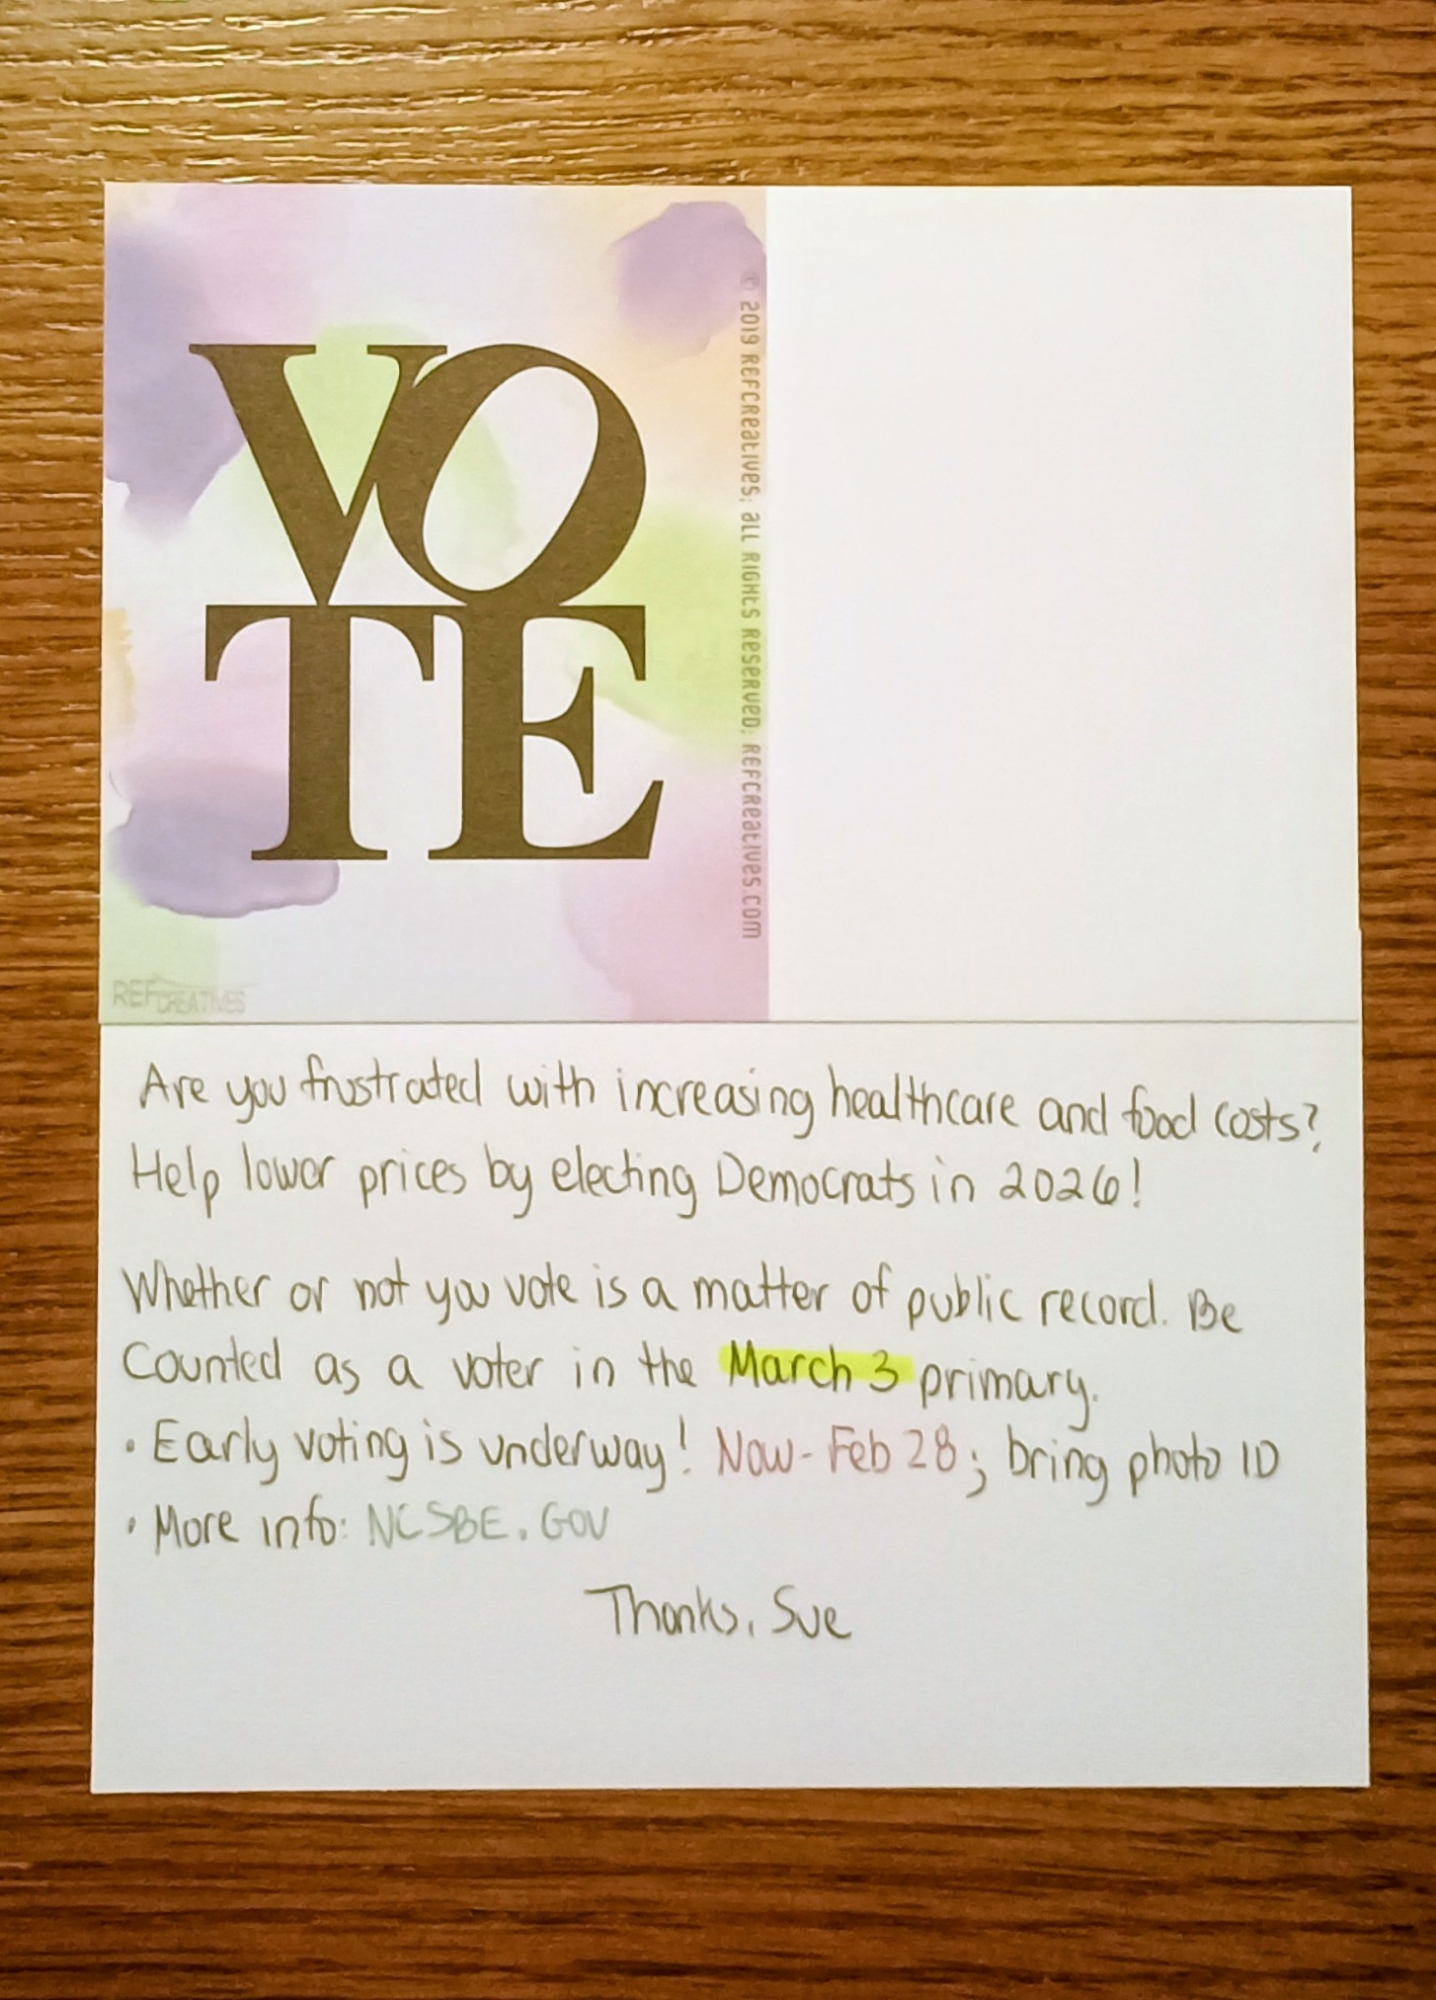 VO
TE
© 2019 REFCREATIVES; ALL RIGHTS RESERVED; REFCREATIVES.COM
REFCREATIVES
Are you frustrated with increasing healthcare and food costs?
Help lower prices by electing Democrats in 2026!
Whether or not you vote is a matter of public record. Be
Counted as a voter in the March 3 primary.
• Early voting is underway! Now - Feb 28; bring photo ID
• More info: NCSBE.GOV
Thanks, Sue